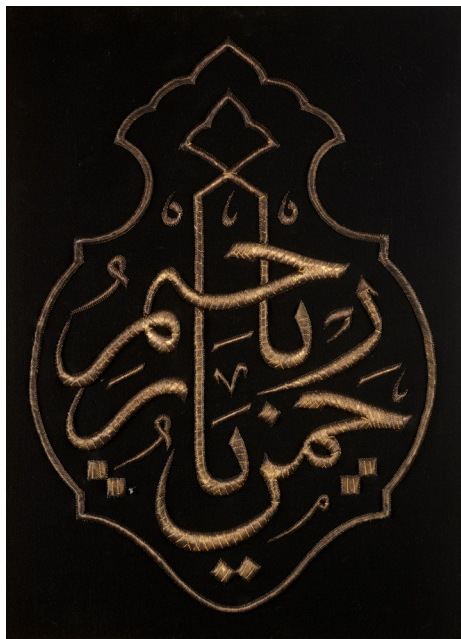 يا رحمن
يا رحيم